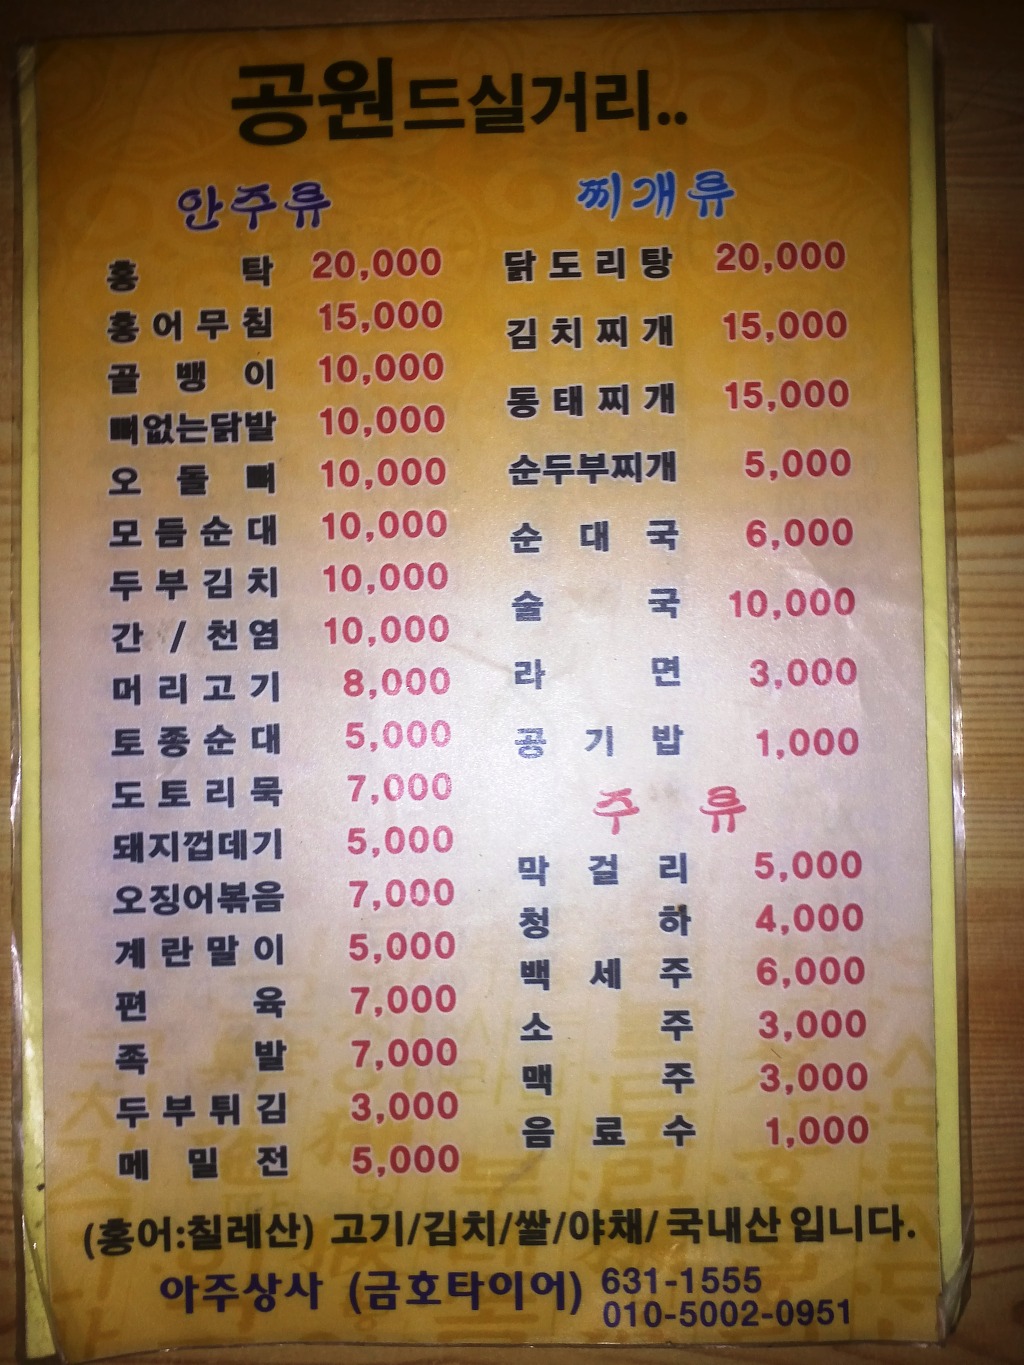 공원드실거리..
안주류
홍탁 20,000
홍어무침 15,000
골뱅이 10,000
뼈없는닭발 10,000
오돌뼈 10,000
모듬순대 10,000
두부김치 10,000
간/천엽 10,000
머리고기 8,000
토종순대 5,000
도토리묵 7,000
돼지껍데기 5,000
오징어볶음 7,000
계란말이 5,000
편육 7,000
족발 7,000
두부튀김 3,000
메밀전 5,000
찌개류
닭도리탕 20,000
김치찌개 15,000
동태찌개 15,000
순두부찌개 5,000
순대국 6,000
술국 10,000
라면 3,000
공기밥 1,000
주류
막걸리 5,000
청하 4,000
백세주 6,000
소주 3,000
맥주 3,000
음료수 1,000
(홍어:칠레산) 고기/김치/쌀/야채/국내산 입니다.
아주상사 (금호타이어) 631-1555
010-5002-0951